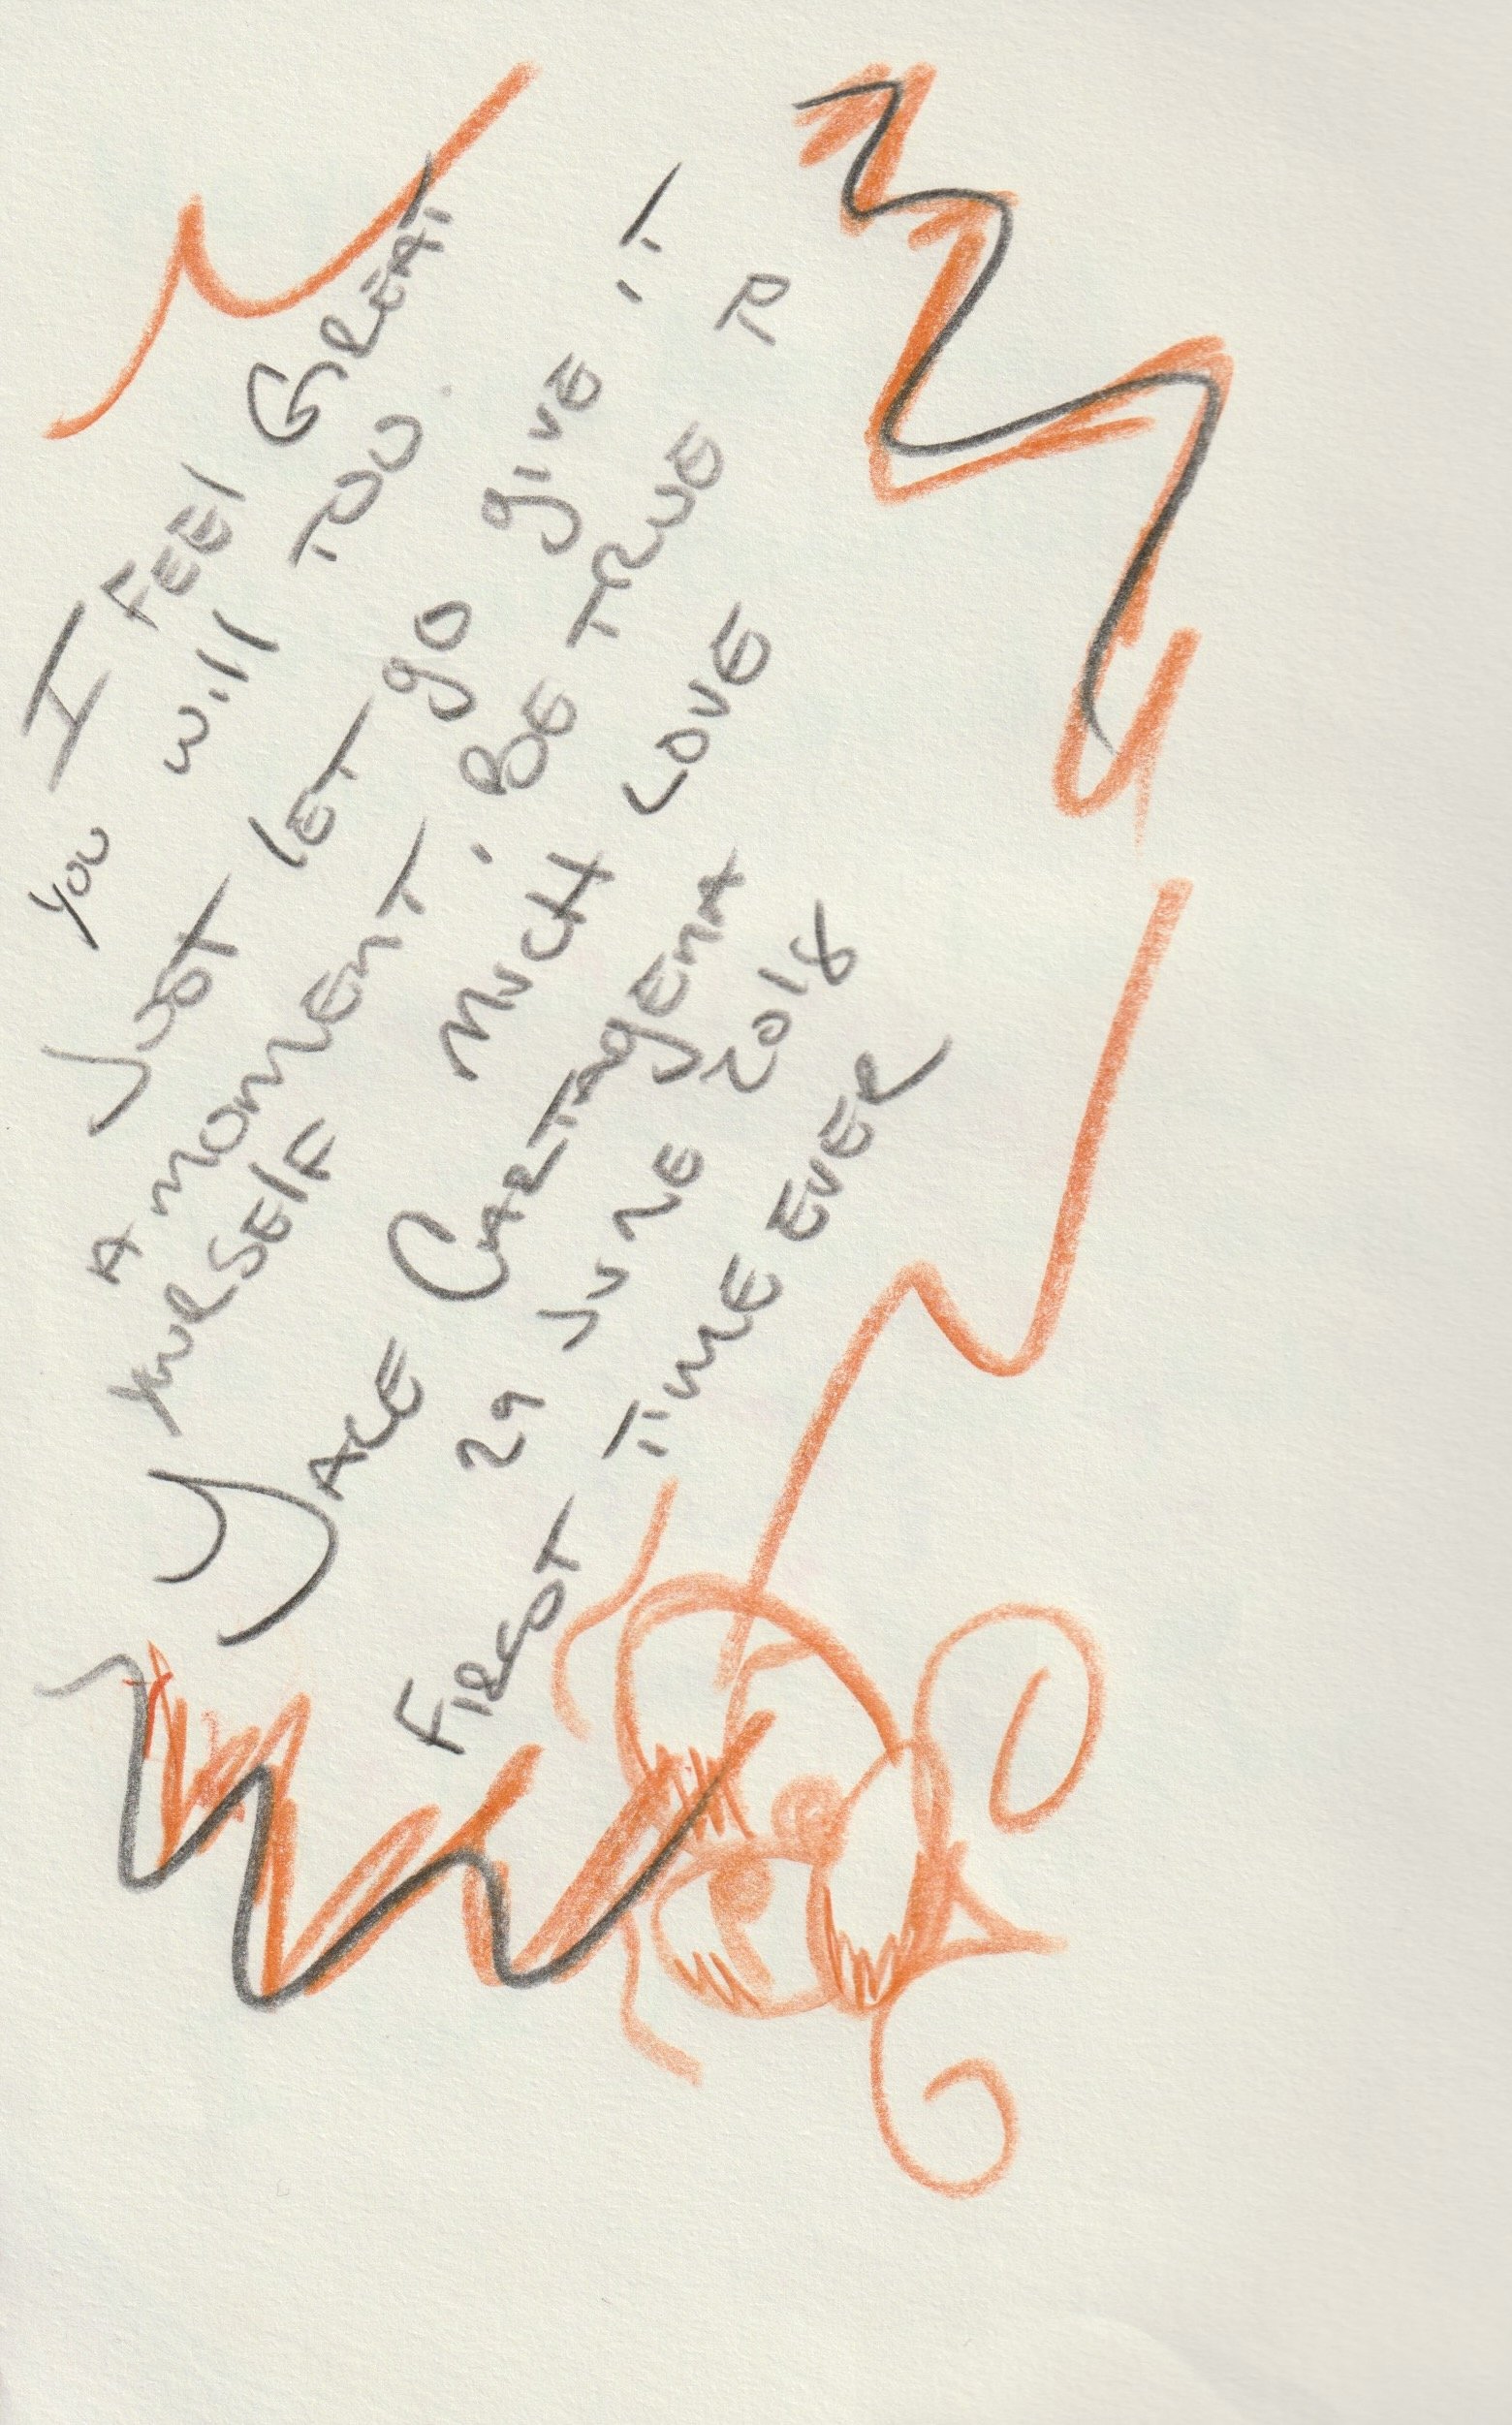 I FEEl GREAT
you will TOO.
JUST lET go give IT
A MOMENT. BE TRUE TO
YOURSElF MUCH LOVE
YALE CARTAGENA
29 JUNE 2018
FIRST TIME EVER